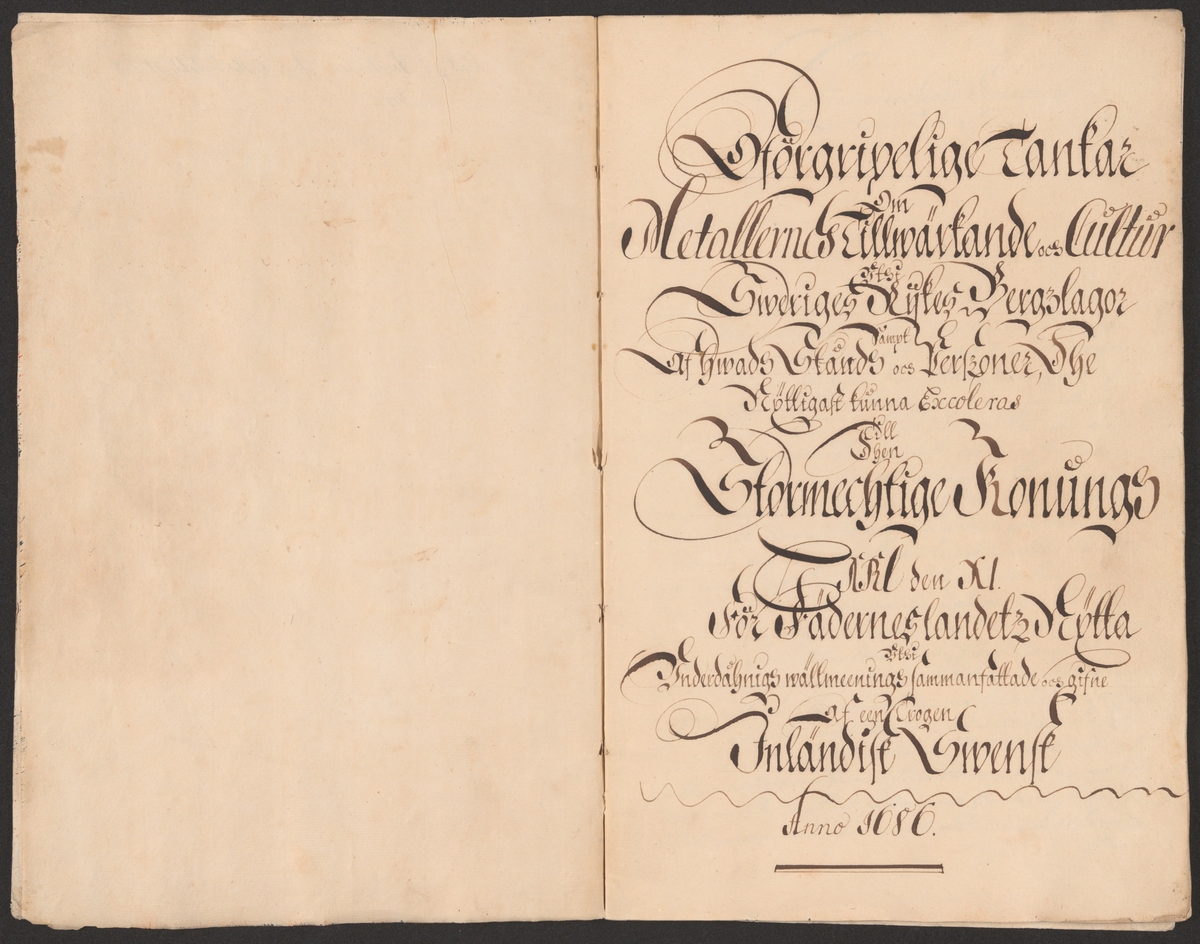 Oförgripelige Tankar
Om
Metallernes Tillwärkande och Cultur
Uthi
Sweriges Rijkes Bergzlagor
Sampt
Af hwads Stånds och Perszoner, The
Nyttigast kunna Excoleras
Till
Then
Stormechtige Konungs
CARL den XI.
För Fäderneslandetz Nytta
Uthi
Underdåhnigs wällmeenings sammanfattade och gifne
Af een Trogen
Inländisk Swensk
Anno 1686.